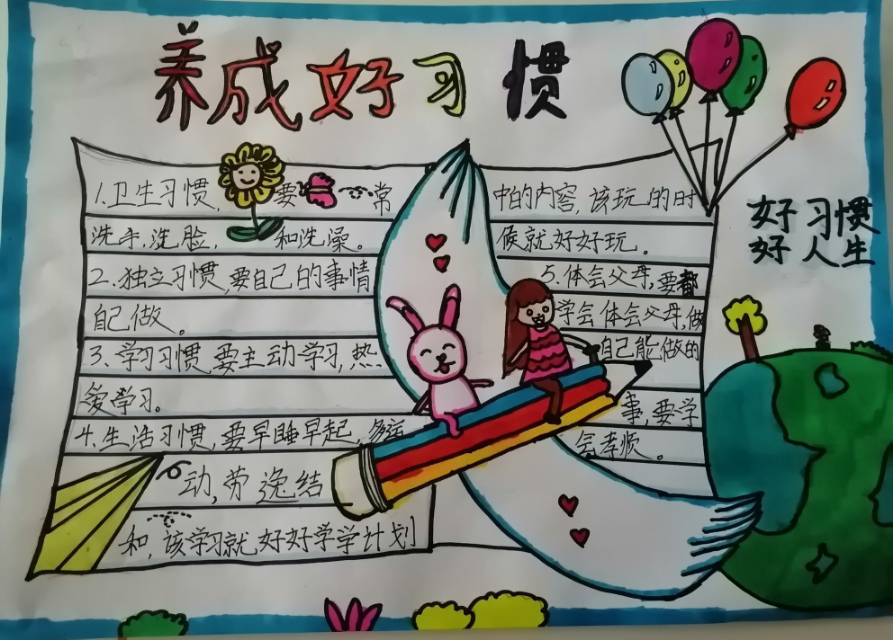 养成好习惯
1.卫生习惯,要常
洗手,洗脸,和洗澡。
2.独立习惯,要自己的事情
自己做。
3.学习习惯,要主动学习,热
爱学习。
4.生活习惯,要早睡早起,多
动,劳逸结
和,该学习就好好学学计划
中的内容,该玩的时
候就好好玩。
5.体会父母,要都
学会体会父母,做
自己能做的
事,要学
会孝顺。
好习惯
好人生